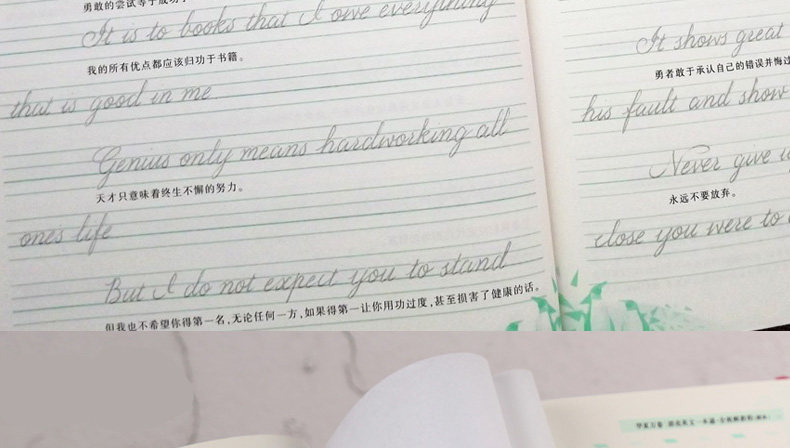 勇敢的尝试等于成功
It is to books that I owe everything
我的所有优点都应该归功于书籍。
that is good in me
Genius only means hardworking all
天才只意味着终生不懈的努力。
ones life
But I do not expect you to stand
但我也不希望你得第一名,无论任何一方,如果得第一让你用功过度,甚至损害了健康的话。
It shows great
勇者敢于承认自己的错误并悔过
his fault and show
Never give
永远不要放弃。
close you were to